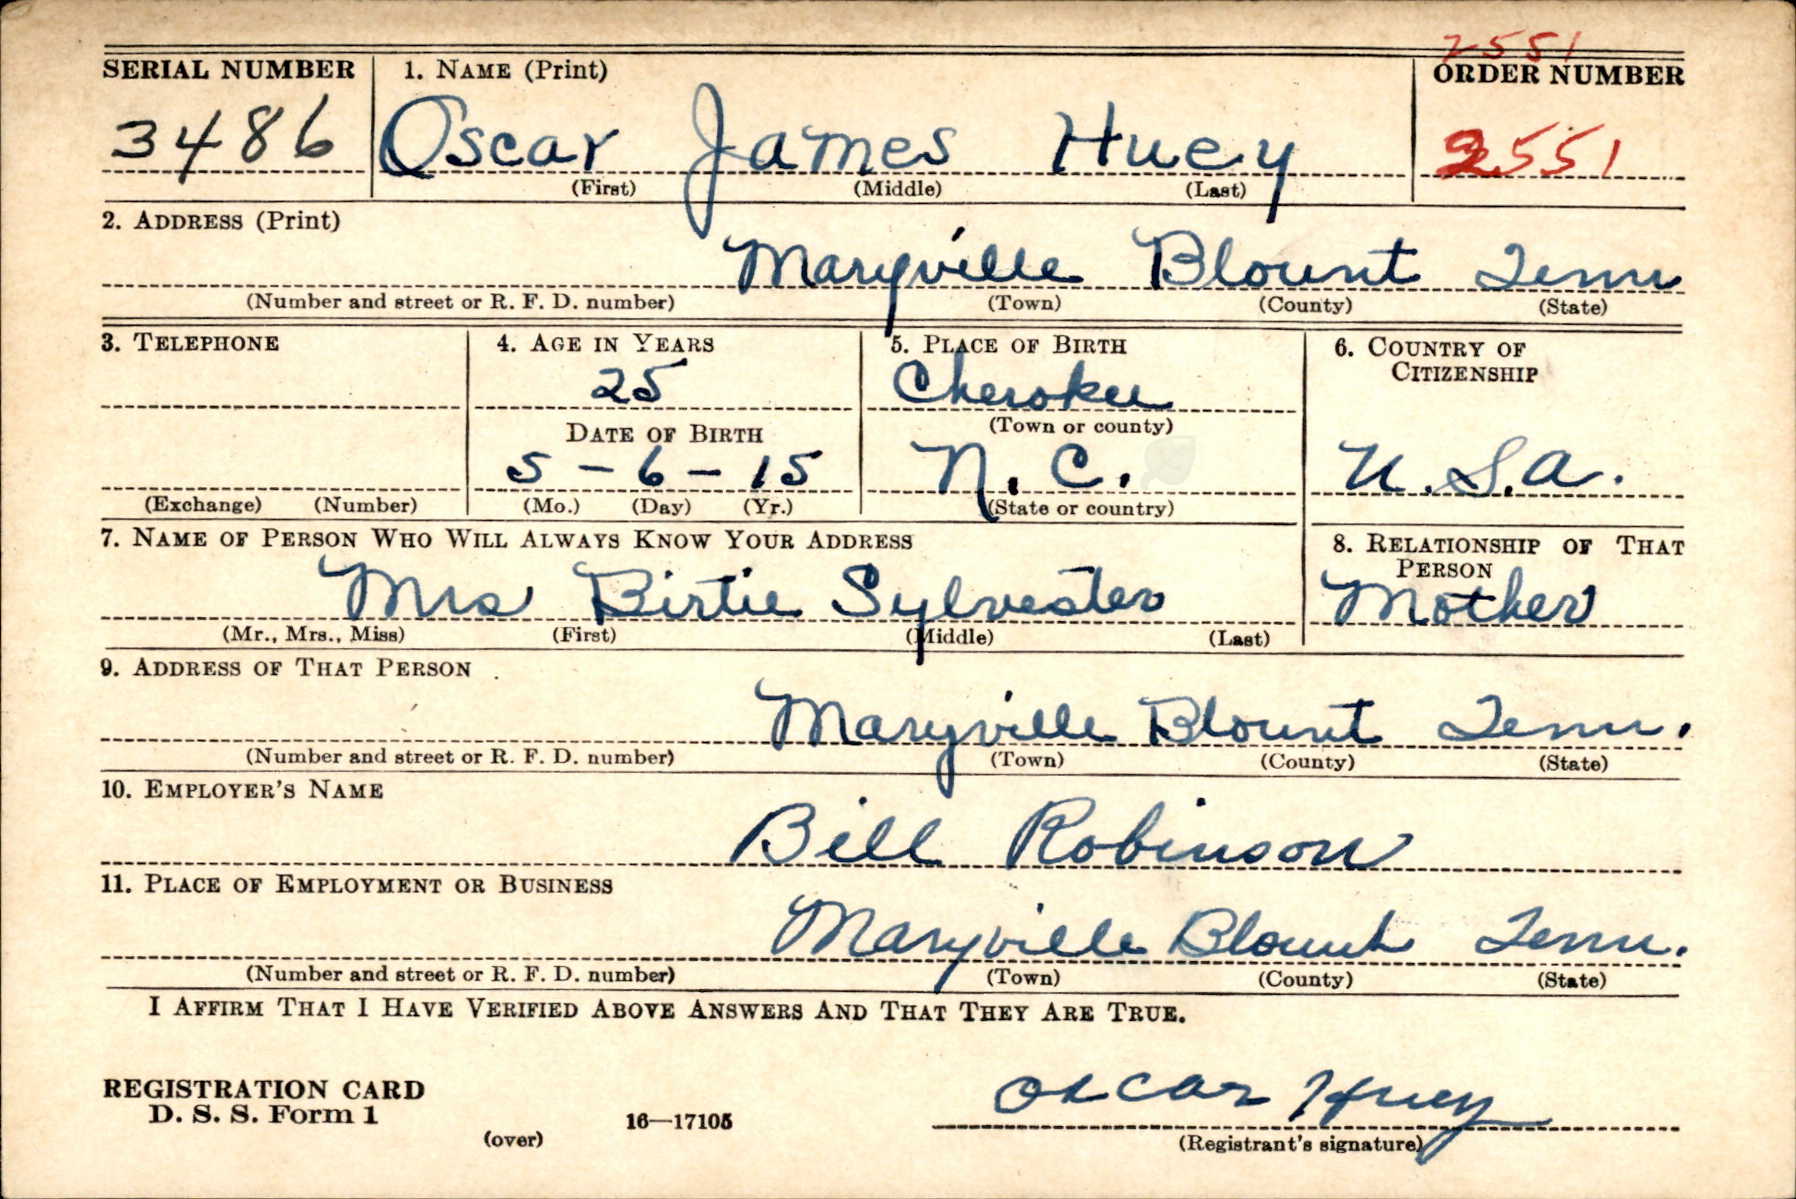 2551
SERIAL NUMBER 1. NAME (Print) ORDER NUMBER
3486 Oscar James Huey 2551
(First) (Middle) (Last)
2. ADDRESS (Print)
Maryville Blount Tenn
(Number and street or R. F. D. number) (Town) (County) (State)
3. TELEPHONE 4. AGE IN YEARS 5. PLACE OF BIRTH 6. COUNTRY OF
CITIZENSHIP
25 Cherokee
(Town or county)
DATE OF BIRTH
5 - 6 - 15 N. C. U. S. A.
(Exchange) (Number) (Mo.) (Day) (Yr.) (State or country)
7. NAME OF PERSON WHO WILL ALWAYS KNOW YOUR ADDRESS 8. RELATIONSHIP OF THAT
PERSON
Mrs Birtie Sylvester Mother
(Mr., Mrs., Miss) (First) (Middle) (Last)
9. ADDRESS OF THAT PERSON
Maryville Blount Tenn.
(Number and street or R. F. D. number) (Town) (County) (State)
10. EMPLOYER'S NAME
Bill Robinson
11. PLACE OF EMPLOYMENT OR BUSINESS
Maryville Blount Tenn.
(Number and street or R. F. D. number) (Town) (County) (State)
I AFFIRM THAT I HAVE VERIFIED ABOVE ANSWERS AND THAT THEY ARE TRUE.
REGISTRATION CARD Oscar Huey
D. S. S. Form 1 16—17105
(over) (Registrant's signature)